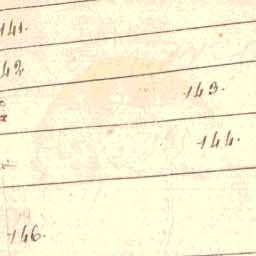 141.
42
143.
144.
146.